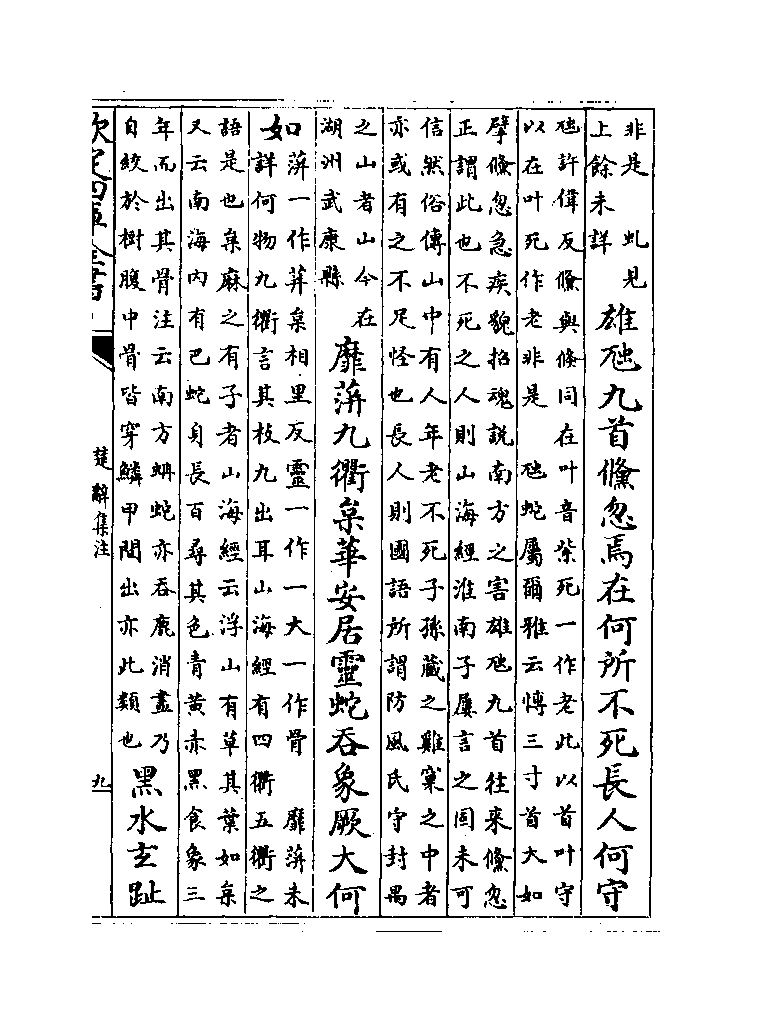 非是　虬見
上餘未詳
雄虺九首儵忽焉在何所不死長人何守
虺許偉反儵與倏同在叶音紫死一作老此以首叶守
以在叶死作老非是　虺蛇屬爾雅云博三寸首大如
擘儵忽急疾貌招魂說南方之害雄虺九首往來儵忽
正謂此也不死之人則山海經淮南子屢言之固未可
信然俗傳山中有人年老不死子孫藏之雞窠之中者
亦或有之不足怪也長人則國語所謂防風氏守封嵎
之山者山今在
湖州武康縣
靡蓱九衢枲華安居靈蛇吞象厥大何
如
蓱一作荓枲相里反靈一作一大一作骨　靡蓱未
詳何物九衢言其枝九出耳山海經有四衢五衢之
語是也枲麻之有子者山海經云浮山有草其葉如枲
又云南海內有巴蛇身長百尋其色青黃赤黑食象三
年而出其骨注云南方蚺蛇亦吞鹿消盡乃
自絞於樹腹中骨皆穿鱗甲間出亦此類也
黑水玄趾
欽定四庫全書
楚辭集注
九